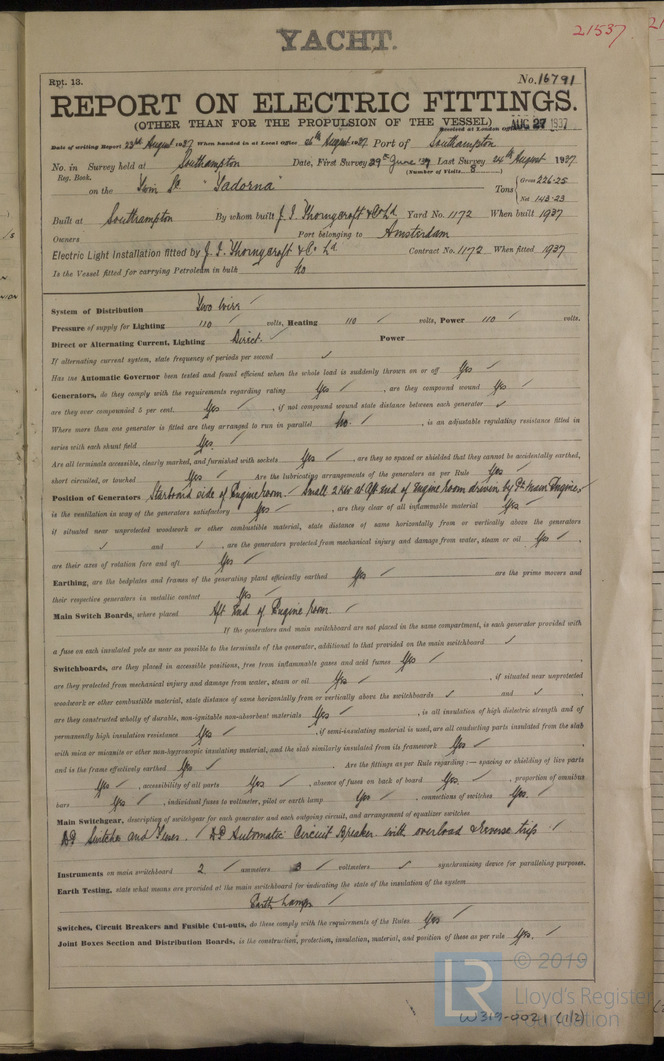 21537
YACHT.
Rpt. 13.
No. 16791
REPORT ON ELECTRIC FITTINGS.
(OTHER THAN FOR THE PROPULSION OF THE VESSEL)
Received at London Office AUG 27 1937
Date of writing Report 23rd August 1937 When handed in at Local Office 26th August 1937 Port of Southampton
No. in Survey held at Southampton Date, First Survey 29th June '37 Last Survey 24th August 1937
Reg. Book. (Number of Visits 8)
on the Twin Sc "Tadorna" Tons { Gross 226.25
Net 143.23
Built at Southampton By whom built J. I. Thornycroft & Co Ld Yard No. 1172 When built 1937
Owners Port belonging to Amsterdam
Electric Light Installation fitted by J. I. Thornycroft & Co. Ld Contract No. 1172 When fitted 1937
Is the Vessel fitted for carrying Petroleum in bulk No
System of Distribution Two Wire ✓
Pressure of supply for Lighting 110 ✓ volts, Heating 110 ✓ volts, Power 110 ✓ volts.
Direct or Alternating Current, Lighting Direct. ✓ Power
If alternating current system, state frequency of periods per second ✓
Has the Automatic Governor been tested and found efficient when the whole load is suddenly thrown on or off Yes ✓
Generators, do they comply with the requirements regarding rating Yes ✓ , are they compound wound Yes ✓
are they over compounded 5 per cent. Yes ✓ , if not compound wound state distance between each generator ✓
Where more than one generator is fitted are they arranged to run in parallel No. ✓ , is an adjustable regulating resistance fitted in
series with each shunt field Yes. ✓
Are all terminals accessible, clearly marked, and furnished with sockets Yes ✓ , are they so spaced or shielded that they cannot be accidentally earthed,
short circuited, or touched Yes ✓ Are the lubricating arrangements of the generators as per Rule Yes ✓
Position of Generators Starboard side of Engine room. ✓ Small 2 KW at Aft End of Engine Room driven by Pt. Main Engine. ✓
is the ventilation in way of the generators satisfactory Yes ✓ , are they clear of all inflammable material Yes ✓
if situated near unprotected woodwork or other combustible material, state distance of same horizontally from or vertically above the generators
✓ and ✓ , are the generators protected from mechanical injury and damage from water, steam or oil Yes ✓
are their axes of rotation fore and aft Yes ✓
Earthing, are the bedplates and frames of the generating plant efficiently earthed Yes ✓ are the prime movers and
their respective generators in metallic contact Yes ✓
Main Switch Boards, where placed Aft End of Engine Room ✓
If the generators and main switchboard are not placed in the same compartment, is each generator provided with
a fuse on each insulated pole as near as possible to the terminals of the generator, additional to that provided on the main switchboard ✓
Switchboards, are they placed in accessible positions, free from inflammable gases and acid fumes Yes ✓
are they protected from mechanical injury and damage from water, steam or oil Yes ✓ , if situated near unprotected
woodwork or other combustible material, state distance of same horizontally from or vertically above the switchboards ✓ and ✓
are they constructed wholly of durable, non-ignitable non-absorbent materials Yes ✓ , is all insulation of high dielectric strength and of
permanently high insulation resistance Yes ✓ , if semi-insulating material is used, are all conducting parts insulated from the slab
with mica or micanite or other non-hygroscopic insulating material, and the slab similarly insulated from its framework Yes ✓
and is the frame effectively earthed Yes ✓ . Are the fittings as per Rule regarding:— spacing or shielding of live parts
Yes ✓ , accessibility of all parts Yes ✓ , absence of fuses on back of board Yes. ✓ , proportion of omnibus
bars Yes ✓ , individual fuses to voltmeter, pilot or earth lamp Yes ✓ , connections of switches Yes. ✓
Main Switchgear, description of switchgear for each generator and each outgoing circuit, and arrangement of equaliser switches
DP Switches and Fuses. ✓ DP Automatic Circuit Breaker with overload & reverse trip ✓
Instruments on main switchboard 2 ✓ ammeters 3 ✓ voltmeters ✓ synchronising device for paralleling purposes.
Earth Testing, state what means are provided at the main switchboard for indicating the state of the insulation of the system
Earth Lamps ✓
Switches, Circuit Breakers and Fusible Cut-outs, do these comply with the requirements of the Rules Yes ✓
Joint Boxes Section and Distribution Boards, is the construction, protection, insulation, material, and position of these as per rule Yes. ✓
© 2019
LR
Lloyd's Register
Foundation
W319-0021 (1/2)